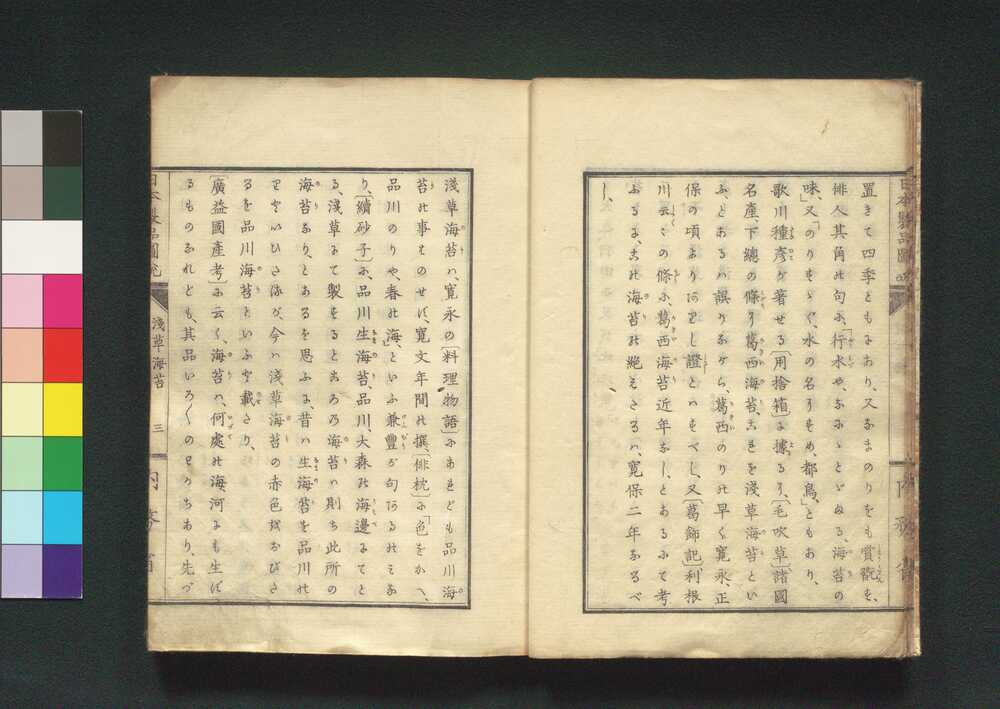 置きて四季ともにあり、又なまのりをも賞翫を、
俳人其角の句に、「行水や、なにゝとゞぬる、海苔の
味、」又「のりもゞく、水の名にすめ、都鳥、」ともあり、
歌川種彦が著せる〔用捨箱〕に據るに、〔毛吹草〕諸國
名産、下總の條に葛西海苔、これを淺草海苔とい
ふ、とあるハ誤りながら、葛西のりの早く寛永、正
保の頃よりありし證とハすべし、又〔葛飾記〕、利根
川云々の條に、葛西海苔近年なし、とあるにて考
ふるに、その海苔の絶えたるハ、寛保二年なるべ
し、
淺草海苔ハ、寛永の〔料理物語〕にあれども品川海
苔の事をのせず、寛文年間の撰、〔俳枕〕に「色をかへ、
品川のりや、春の海、」といふ兼豐が句あるのみな
り、〔續砂子〕に、品川生海苔、品川、大森の海邊にてと
る、淺草にて製するところの海苔ハ則ち此所の
海苔なり、とあるを思ふに、昔ハ生海苔を品川の
りといひたるが、今ハ淺草海苔の赤色をおびた
るを品川海苔といふと載たり、
〔廣益國産考〕に云く、海苔ハ、何處の海河にも生ず
るものなれども、其品いろ〱のわかちあり、先づ
淺草海苔
三
内務省